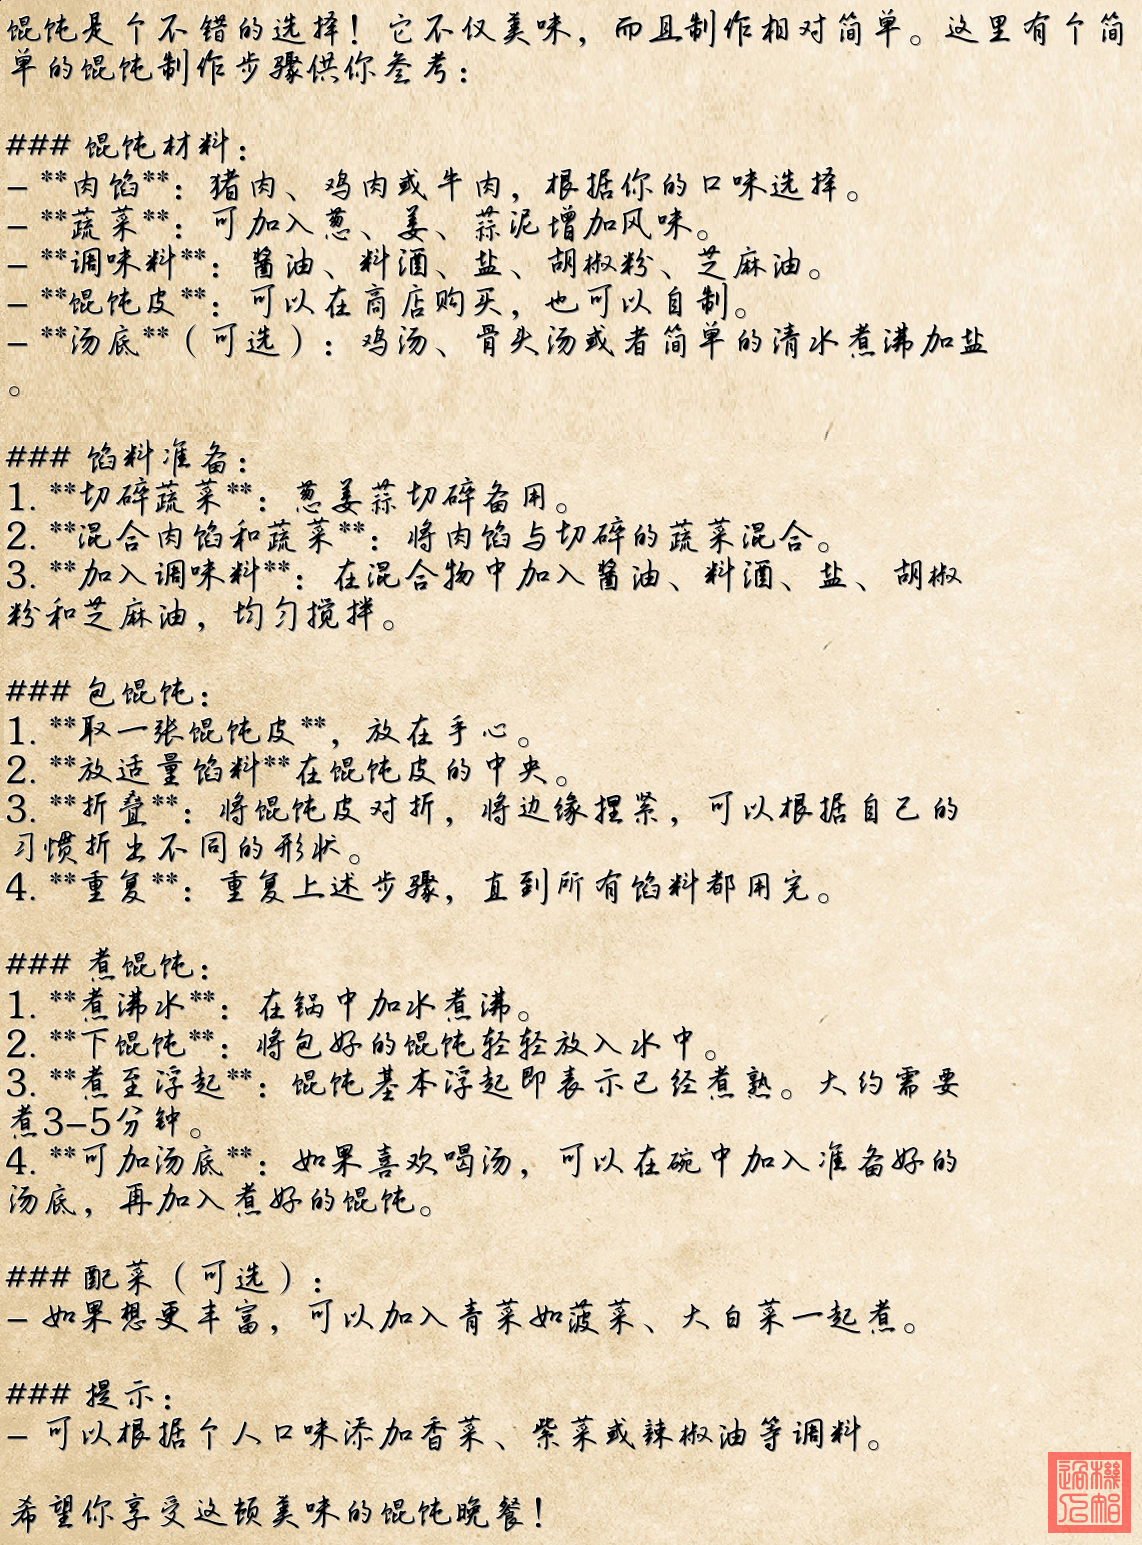 馄饨是个不错的选择！它不仅美味，而且制作相对简单。这里有个简
单的馄饨制作步骤供你参考：
### 馄饨材料：
- **肉馅**：猪肉、鸡肉或牛肉，根据你的口味选择。
- **蔬菜**：可加入葱、姜、蒜泥增加风味。
- **调味料**：酱油、料酒、盐、胡椒粉、芝麻油。
- **馄饨皮**：可以在商店购买，也可以自制。
- **汤底**（可选）：鸡汤、骨头汤或者简单的清水煮沸加盐
。
### 馅料准备：
1. **切碎蔬菜**：葱姜蒜切碎备用。
2. **混合肉馅和蔬菜**：将肉馅与切碎的蔬菜混合。
3. **加入调味料**：在混合物中加入酱油、料酒、盐、胡椒
粉和芝麻油，均匀搅拌。
### 包馄饨：
1. **取一张馄饨皮**，放在手心。
2. **放适量馅料**在馄饨皮的中央。
3. **折叠**：将馄饨皮对折，将边缘捏紧，可以根据自己的
习惯折出不同的形状。
4. **重复**：重复上述步骤，直到所有馅料都用完。
### 煮馄饨：
1. **煮沸水**：在锅中加水煮沸。
2. **下馄饨**：将包好的馄饨轻轻放入水中。
3. **煮至浮起**：馄饨基本浮起即表示已经煮熟。大约需要
煮3-5分钟。
4. **可加汤底**：如果喜欢喝汤，可以在碗中加入准备好的
汤底，再加入煮好的馄饨。
### 配菜（可选）：
- 如果想更丰富，可以加入青菜如菠菜、大白菜一起煮。
### 提示：
- 可以根据个人口味添加香菜、紫菜或辣椒油等调料。
希望你享受这顿美味的馄饨晚餐！